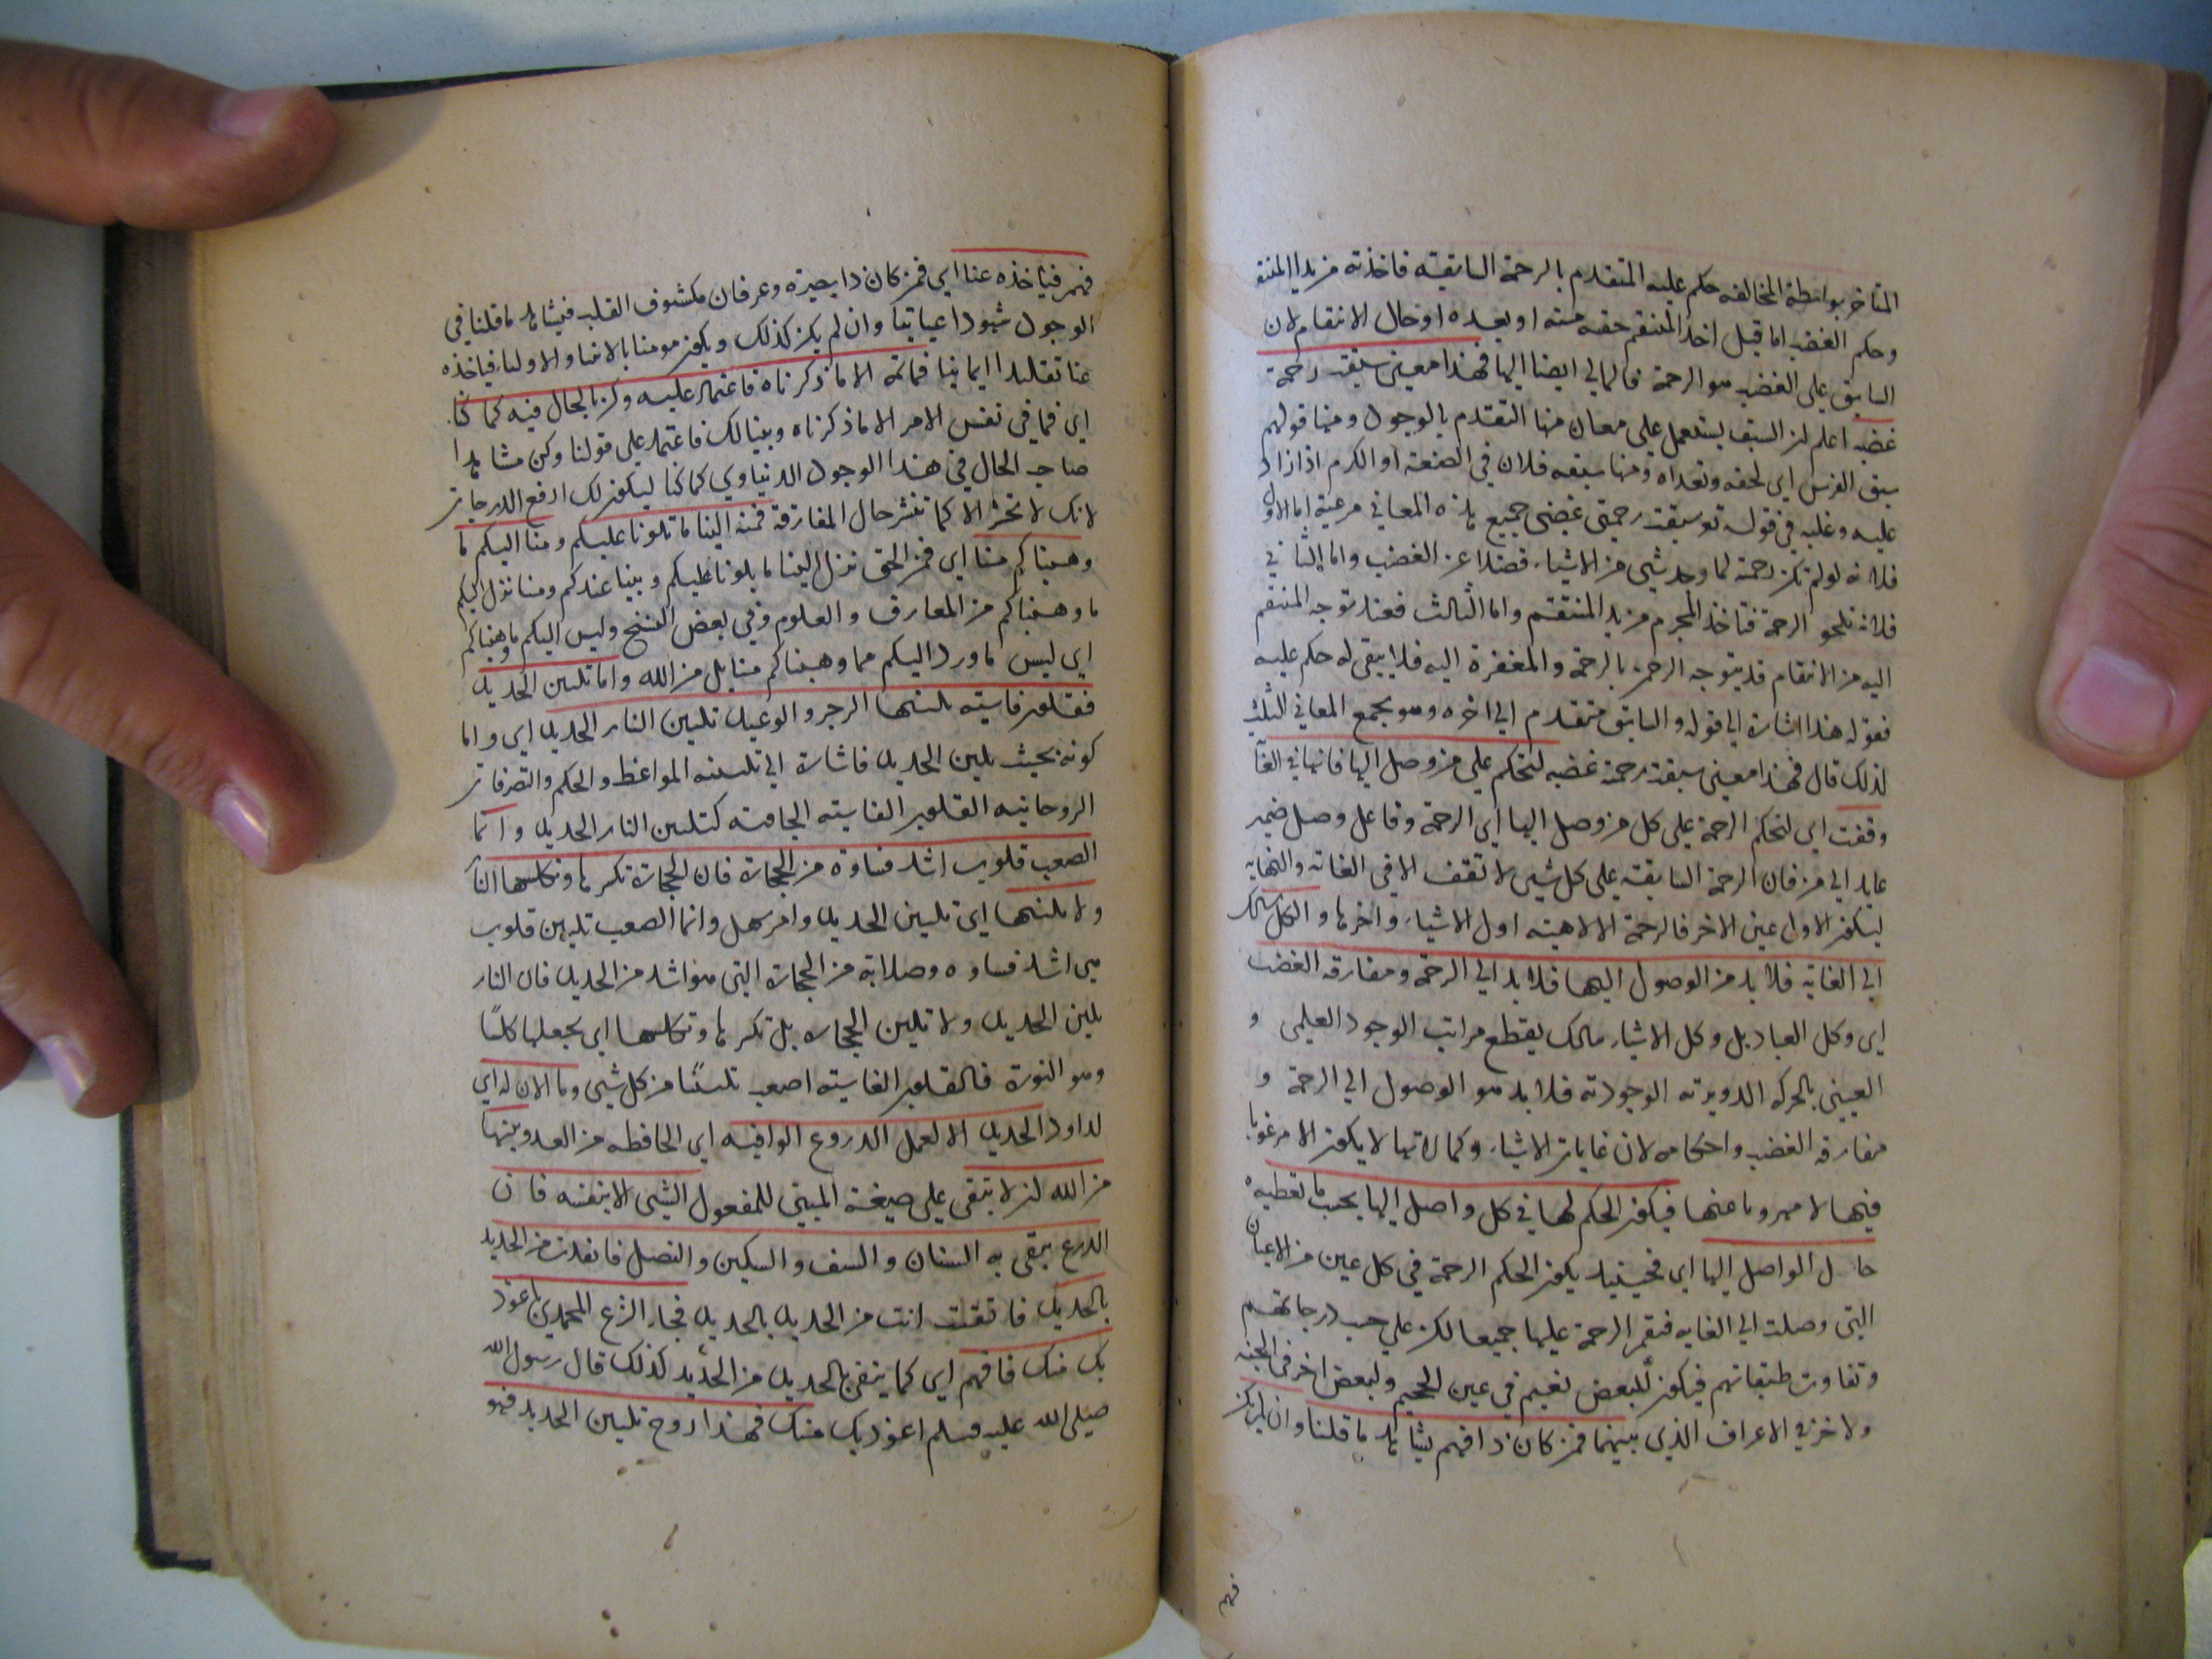 المتاخر بواسطة المخالفه حكم عليه المتقدم بالرحمة السابقته فاخذته من يدا المنتقـ
وحكم الغضب اما قبل اخذ المنتقم حقه منه او بعده او حال الانتقام لان
السابق على الغضب هو الرحمة فالمالى ايضا اليها فهذا معنى سبقت رحمة
غضبه اعلم ان السبق يستعمل على معان منها التقدم بالوجود ومنها قولهم
سبق الفرس اي لحقه وتعداه ومنها سبقه فلان في الصنعة او الكرم اذا زاد
عليه وغلبه في قوله تع سبقت رحمتي غضبي جميع هذه المعاني مرعية اما الاول
فلانه لو لم تكن رحمته لما وجد شي من الاشياء فضلا عن الغضب واما الثاني
فلانه تلحق الرحمة فتاخذ المجرم من يد المنتقم واما الثالث فعند توجه المنتقم
اليه من الانتقام قد يتوجه الرحمن بالرحمة والمغفرة اليه فلا يبقى له حكم عليه
فقوله هذا اشارة الى قوله والسابق متقدم الى اخره وهو يجمع المعاني الثلث
لذلك قال فهذا معنى سبقت رحمة غضبه لتحكم على من وصل اليها فانها في الغا
وقفت اي لتحكم الرحمة على كل من وصل اليها اي الرحمة وفاعل وصل ضمير
عايد الى من فان الرحمة السابقته على كل شي لا تقف الا في الغاته والنهايه
ليكون الاول عين الاخر فالرحمة الالاهيته اول الاشياء واخرها والكل سالك
الى الغايه فلا بد من الوصول اليها فلا بد الى الرحمة ومفارقه الغضب
اي وكل العباد بل وكل الاشياء سالك يقطع مراتب الوجود العلمي و
العيني بالحركه الدوريته الوجودته فلا بد هو الوصول الى الرحمة و
مفارقه الغضب واحكامه لان غايات الاشياء وكمالاتها لا يكون الا مرغوبا
فيها لا مهروبا عنها فيكون الحكم لها في كل واصل اليها بحسب ما تعطيه
حال الواصل اليها اي فحينيذ يكون الحكم الرحمة في كل عين من الاعيان
التي وصلت الى الغايه فتقم الرحمة عليها جميعا لكن على حسب درجاتهم
وتفاوت طبقاتهم فيكون للبعض نعيم في عين الجحيم ولبعض اخر في الجنه
ولاخر في الاعراف الذي بينهما فمن كان ذا فهم يشاهد ما قلنا وان لم يكن
فهم فياخذه عنا اي فمن كان ذا بصيرة وعرفان مكشوف القلب فيشاهد ما قلنا في
الوجود شهودا عيانيا وان لم يكن كذلك ويكون مومنا بالانبيا والاولياء فياخذه
عنا تقليدا ايمانيا فماثمه الا ما ذكرناه فاعتمد عليه وكن بالحال فيه كما كنا
اي فما في نفس الامر الا ما ذكرناه وبينا لك فاعتمد على قولنا وكن مشاهدا
صاحب الحال في هذا الوجود الدنياوي كما كنا ليكون لك ارفع الدرجات
لانك لا تحشر الا كما تنشر حال المفارقة فمنه الينا ما تلونا عليكم ومنا اليكم ما
وهبناكم منا اي فمن الحق نزل الينا ما يلونا عليكم وبينا عندكم ومنا نزل اليكم
ما وهبناكم من المعارف والعلوم وفي بعض النسخ وليس اليكم ما وهبناكم
اي ليس ما ورد اليكم مما وهبناكم منا بل من الله واما تليين الحديد
فقلوب قاسيته يلينها الزجر والوعيد تليين النار الحديد اي واما
كونه بحيث يلين الحديد فاشارة الى تليينه المواعظ والحكم والتصرفات
الروحانيه القلوب القاسيته الجافته كتليين النار الحديد وانما
الصعب قلوب اشد قساوة من الحجارة فان الحجارة تكسرها وتكلسها النا
ولا يلينها اي تليين الحديد وامر سهل وانما الصعب تليين قلوب
هي اشد قساوه وصلابته من الحجارة التي هو اشد من الحديد فان النار
يلين الحديد ولا تليين الحجاره بل تكسرها وتكلسها اي يجعلها كلسًا
وهو النورة فالقلوب القاسيته اصعب تليينًا من كل شي وما الان له اي
لداود الحديد الا لعمل الدروع الواقيه اي الحافظه من العدو تنبيها
من الله لن لا يتقى على صيغة المبني للمفعول الشي الا بنفسه فان
الدرع يتقى به السنان والسيف والسكين والنصل فاتقيت من الحديد
بالحديد فاتقيت انت من الحديد بالحديد فجاء الشرع المحمدي باعوذ
بك منك فافهم اي كما يتقي بالحديد من الحديد كذلك قال رسول الله
صلى الله عليه وسلم اعوذ بك منك فهذا روح تليين الحديد فهو